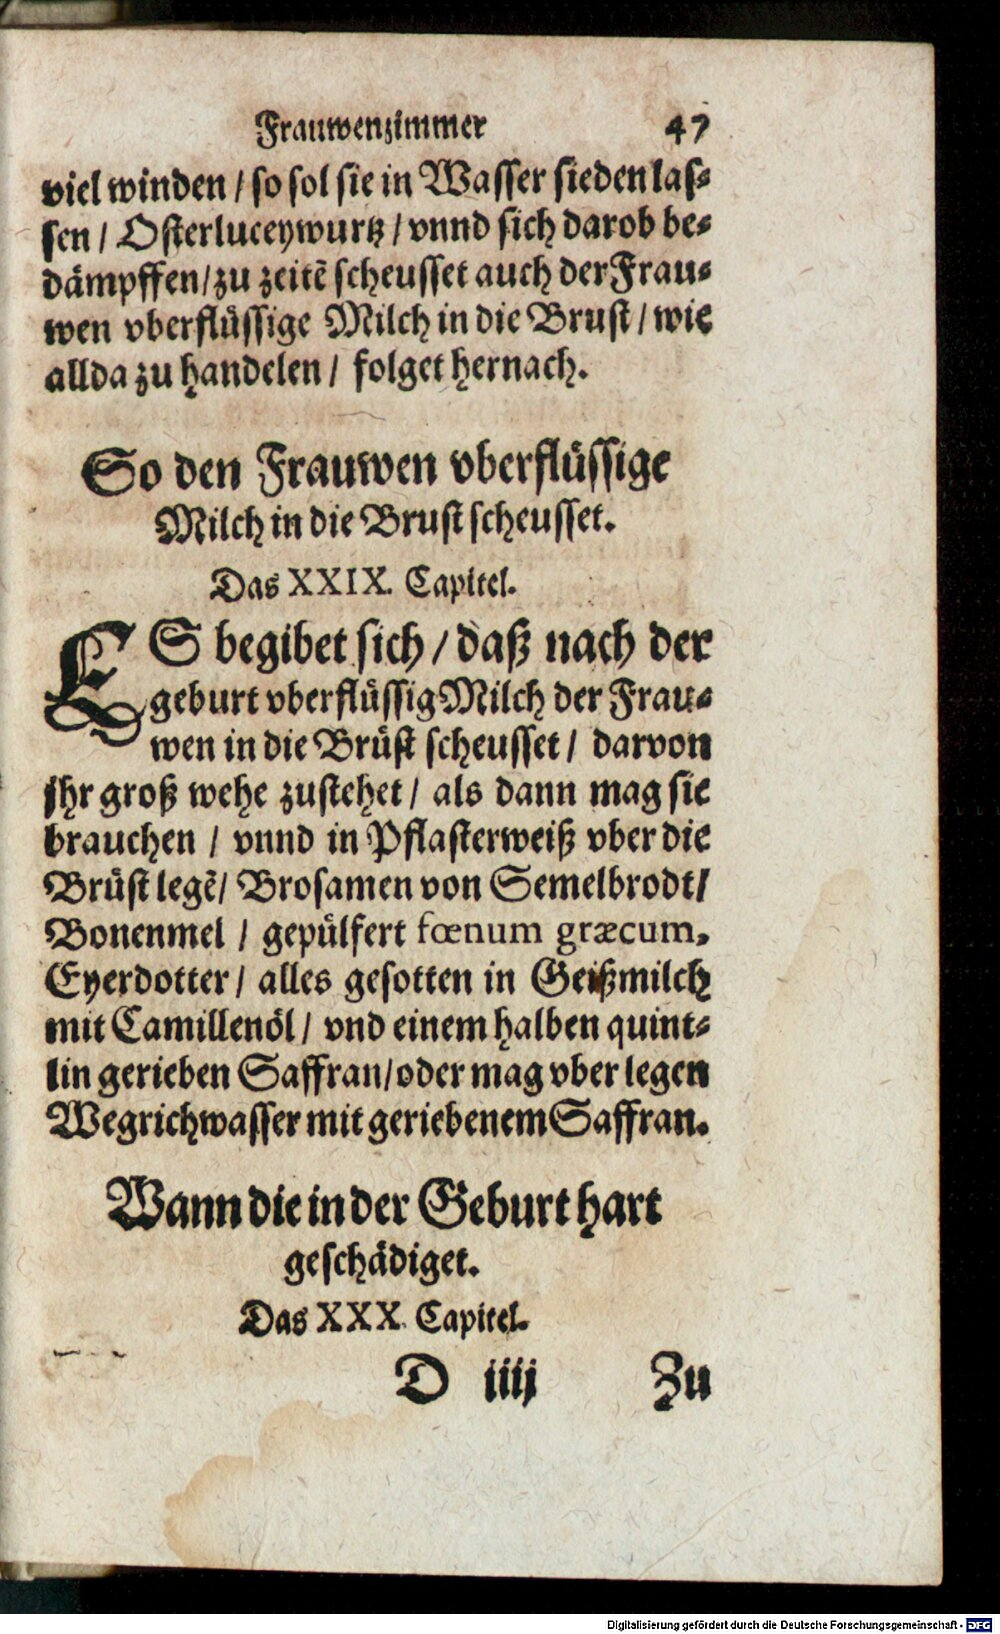 Frauwenzimmer 47
viel winden / so sol sie in Wasser sieden las⸗
sen / Osterluceywurtz / vnnd sich darob be⸗
dämpffen / zu zeitẽ scheusset auch der Frau⸗
wen vberflüssige Milch in die Brust / wie
allda zu handelen / folget hernach.
So den Frauwen vberflüssige
Milch in die Brust scheusset.
Das XXIX. Capitel.
ES begibet sich / daß nach der
geburt vberflüssig Milch der Frau⸗
wen in die Brüst scheusset / darvon
jhr groß wehe zustehet / als dann mag sie
brauchen / vnnd in Pflasterweiß vber die
Brüst legẽ / Brosamen von Semelbrodt /
Bonenmel / gepülfert fœnum græcum,
Eyerdotter / alles gesotten in Geißmilch
mit Camillenöl / vnd einem halben quint⸗
lin gerieben Saffran / oder mag vber legen
Wegrichwasser mit geriebenem Saffran.
Wann die in der Geburt hart
geschädiget.
Das XXX. Capitel.
D iiij Zu
Digitalisierung gefördert durch die Deutsche Forschungsgemeinschaft - DFG